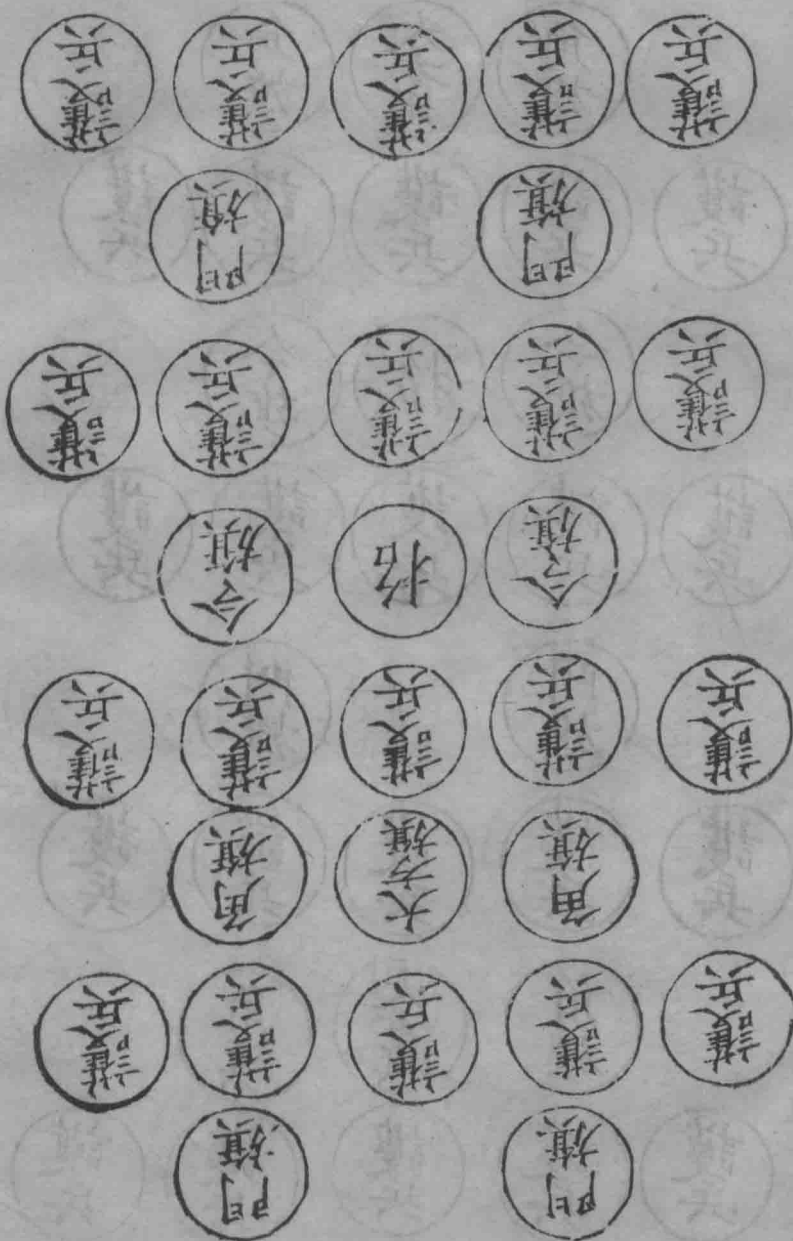 門旗 門旗
護兵 護兵 護兵 護兵 護兵
角旗 大方旗 角旗
護兵 護兵 護兵 護兵 護兵
令旗 招 令旗
護兵 護兵 護兵 護兵 護兵
門旗 門旗
護兵 護兵 護兵 護兵 護兵